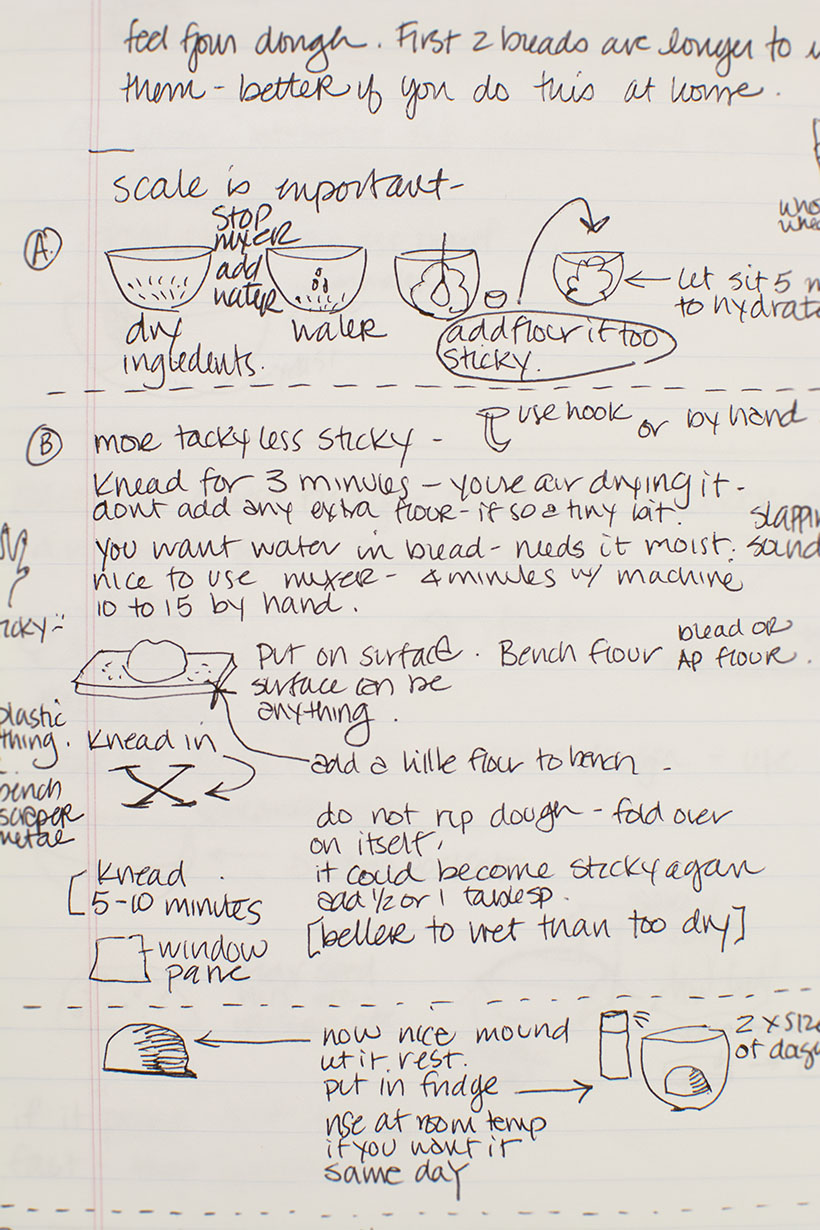 feel your dough. First 2 breads are longer to
them - better if you do this at home.
scale is important-
whole
wheat
A.
stop
mixer
add
water
dry
ingredents.
water
add flour if too
sticky.
Let sit 5
to hydrate
B
more tacky less sticky -
use hook or by hand
Knead for 3 minutes - youre air drying it -
dont add any extra flour - if so a tiny bit.
slapping
sound
you want water in bread - needs it moist.
nice to use mixer - 4 minutes w/ machine
10 to 15 by hand.
Put on surface. Bench flour bread OR
AP flour.
surface can be
anything.
plastic
thing.
bench
scraper
metal
Knead in
X
add a little flour to bench -
do not rip dough - fold over
on itself,
it could become sticky again
add 1/2 or 1 tablesp.
[better to wet than too dry]
Knead
5-10 minutes
window
pane
now nice mound
let it rest.
put in fridge
rise at room temp
if you want it
same day
2 x size
of dough